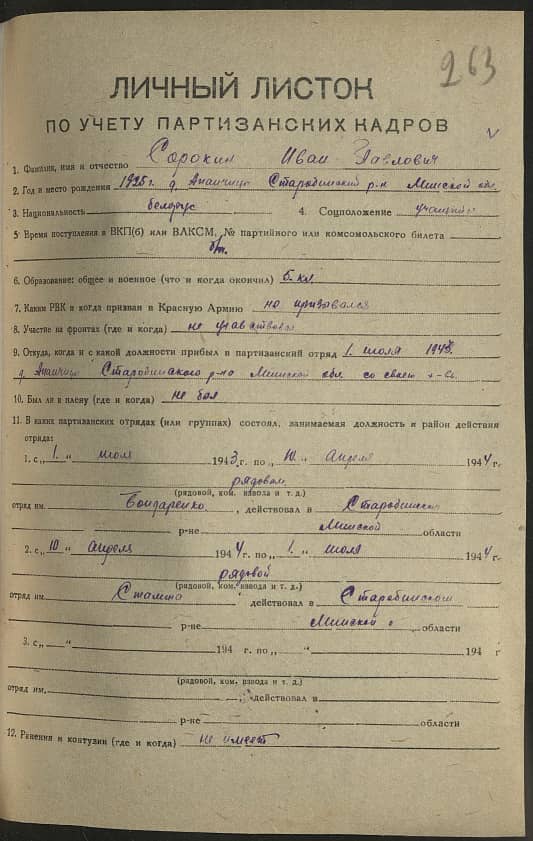 263
ЛИЧНЫЙ ЛИСТОК
ПО УЧЕТУ ПАРТИЗАНСКИХ КАДРОВ
1. Фамилия, имя и отчество Сорокин Иван Павлович
2. Год и место рождения 1925 г. д. Старобинский р-н Минской обл.
3. Национальность белорус 4. Соцположение учащийс
5. Время поступления в ВКП(б) или ВЛКСМ, № партийного или комсомольского билета
б/п.
6. Образование: общее и военное (что и когда окончил) 5 кл.
7. Каким РВК и когда призван в Красную Армию не призывался
8. Участие на фронтах (где и когда) не участвовал
9. Откуда, когда и с какой должности прибыл в партизанский отряд 1 июля 1943.
д. Старобинского р-на Минской обл. со своего
10. Был ли в плену (где и когда) не был
11. В каких партизанских отрядах (или группах) состоял, занимаемая должность и район действия
отряда:
1. с „1.“ июля 1943 г. по „10“ Апреля 1944 г.
рядовой
(рядовой, ком. взвода и т. д.)
отряд им. Бондаренко, действовал в Старобинском
р-не Минской области
2. с „10“ Апреля 1944 г. по „1“ июля 1944 г.
рядовой
(рядовой, ком. взвода и т. д.)
отряд им. Сталина действовал в Старобинском
р-не Минской о области
3. с „ “ 194 г. по „ “ 194 г
(рядовой, ком. взвода и т. д.)
отряд им. , действовал в
р-не области
12. Ранения и контузии (где и когда) не имеет